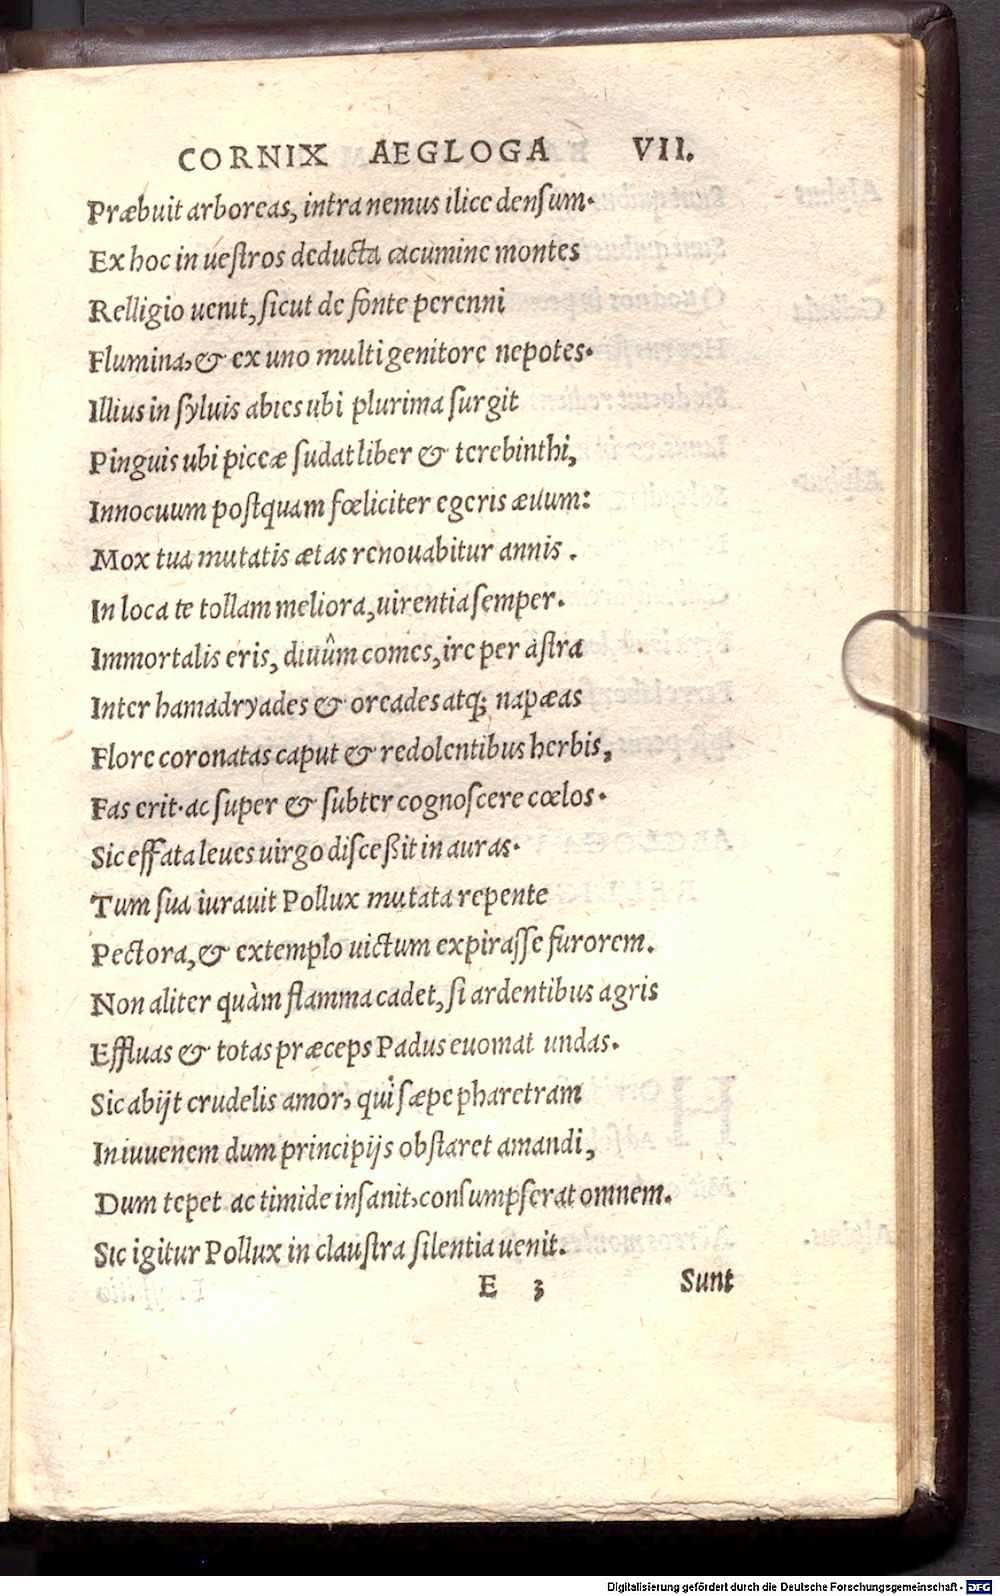 CORNIX AEGLOGA VII.
Præbuit arboreas, intra nemus ilice densum.
Ex hoc in uestros deducta cacumine montes
Relligio uenit, sicut de fonte perenni
Flumina, & ex uno multi genitore nepotes.
Illius in syluis abies ubi plurima surgit
Pinguis ubi piceæ sudat liber & terebinthi,
Innocuum postquam fœliciter egeris æuum:
Mox tua mutatis ætas renouabitur annis.
In loca te tollam meliora, uirentia semper.
Immortalis eris, diuûm comes, ire per astra
Inter hamadryades & oreades atq; napæas
Flore coronatas caput & redolentibus herbis,
Fas erit. ac super & subter cognoscere cœlos.
Sic effata leues uirgo discessit in auras.
Tum sua iurauit Pollux mutata repente
Pectora, & extemplo uictum expirasse furorem.
Non aliter quàm flamma cadet, si ardentibus agris
Effluas & totas præceps Padus euomat undas.
Sic abijt crudelis amor, qui sæpe pharetram
In iuuenem dum principijs obstaret amandi,
Dum tepet ac timide insanit, consumpserat omnem.
Sic igitur Pollux in claustra silentia uenit.
E 3 Sunt
Digitalisierung gefördert durch die Deutsche Forschungsgemeinschaft - DFG